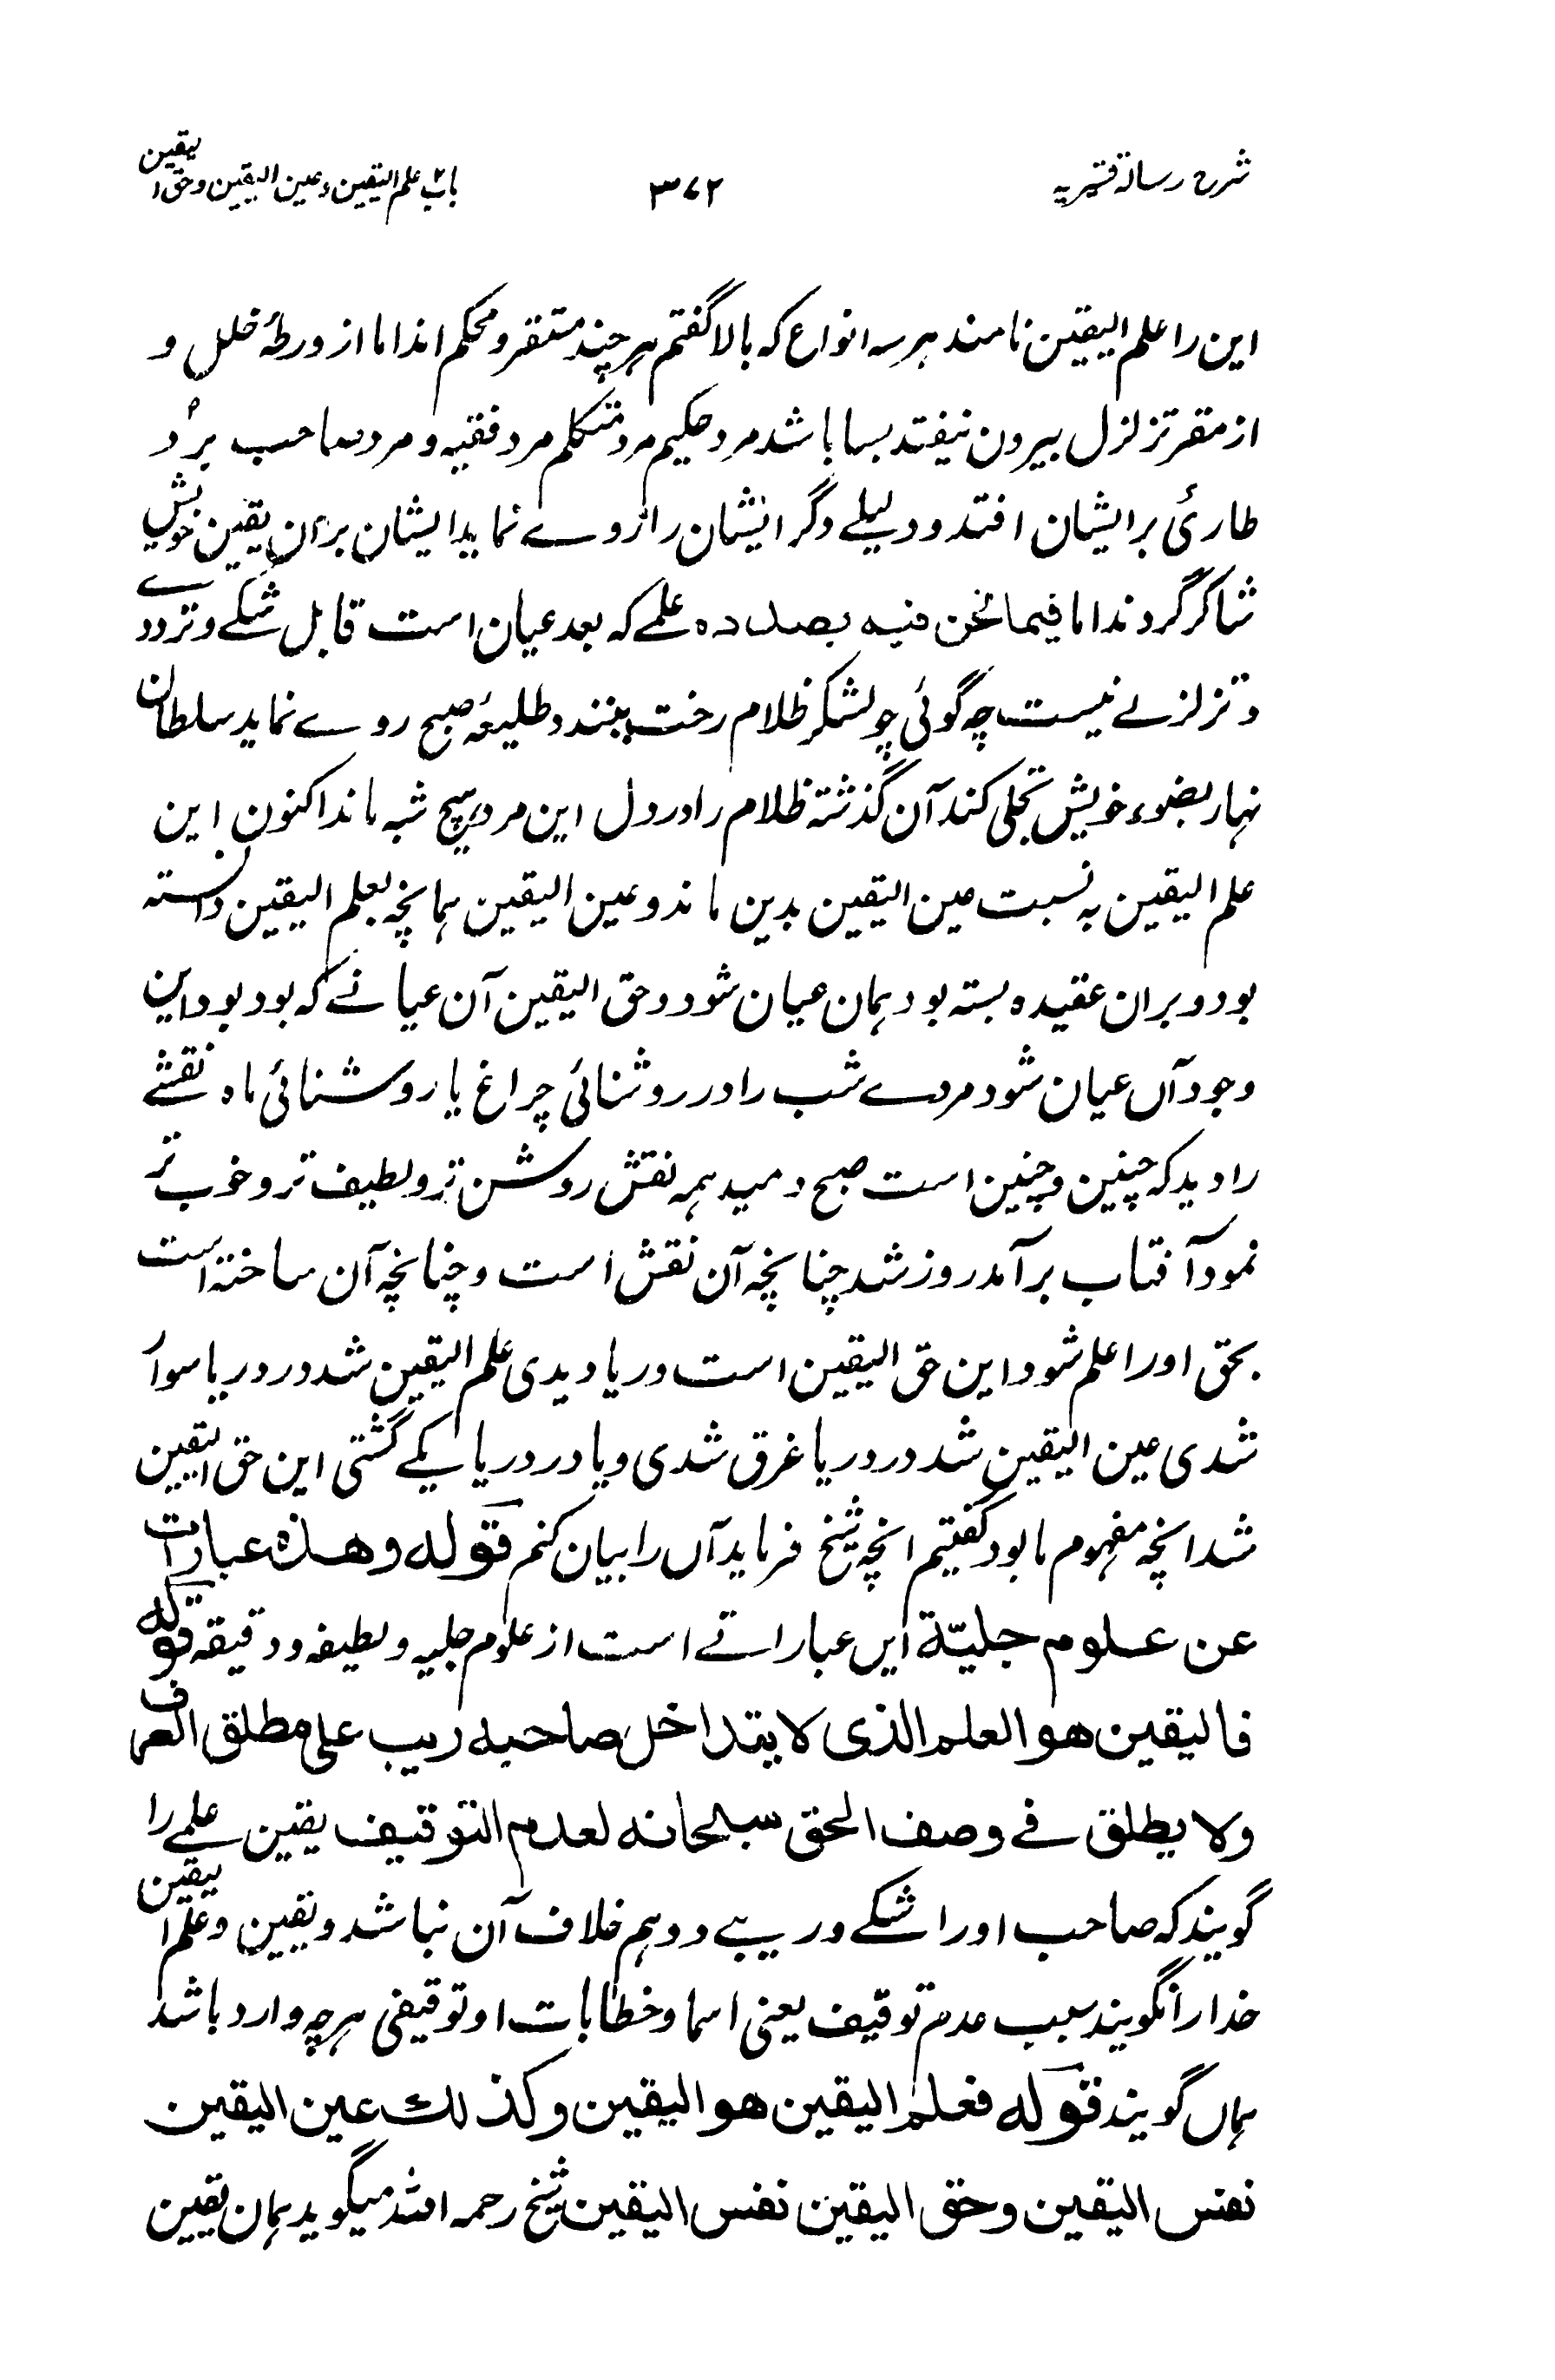 شرح رسالۀ قشیریه ۳۷۲ باب علم الیقین وعین الیقین وحق الیقین
این را علم الیقین نامند ہر سہ انواع کہ بالا گفتم ہر چند مستقر و محکم اند اما از ورطۂ خلل و
از مقر تزلزل بیرون نیفتد بسا باشد مرد حکیم مرد متکلم مرد فقیہ و مرد صاحب برد
طارئ بر ایشان افتد و دلیلے دگر ایشان را روے نماید ایشان بران یقین خویش
شاکر گردند اما فیما نحن فیه بصدده علمے کہ بعد عیان است قابل شکے و ترددے
و تزلزلے نیست چہ گوئی چو لشکر ظلام رخت ببندد طلیعۂ صبح روے نماید سلطان
نہار بضوء خویش تجلی کند آن گذشتہ ظلام را در دل این مرد ہیچ شبہ ماند اکنون این
علم الیقین بہ نسبت عین الیقین بدین ماند و عین الیقین ہمانچہ بعلم الیقین دانستہ
بود و بران عقیدہ بستہ بود ہمان عیان شود و حق الیقین آن عیانے کہ بود بود این
وجود آں عیان شود مردے شب را در روشنائی چراغ یا روشنائی ماہ نقشے
را دید کہ چنین و چنین است صبح دمید ہمہ نقش روشن تر و لطیف تر و خوب تر
نمود آفتاب برآمد روز شد چنانچہ آن نقش است و چنانچہ آن ساختہ است
بحق او را علم شود این حق الیقین است دریا دیدی علم الیقین شد در دریا سوار
شدی عین الیقین شد در دریا غرق شدی و یا در دریا یکے گشتی این حق الیقین
شد انچہ مفہوم ما بود گفتیم انچہ شیخ فرماید آں را بیان کنم قوله وهذه عبارات
عن علوم جلیّة ایں عباراتے است از علوم جلیہ و لطیفہ و دقیقہ قوله
فالیقین هو العلم الذی لا یتداخل صاحبه ریب علی مطلق العرف
ولا یطلق فے وصف الحق سبحانه لعدم التوقیف یقین علمے را
گویند کہ صاحب او را شکے و ریبے و وہم خلاف آن نباشد و یقین و علم الیقین
خدا را نگویند بسبب عدم توقیف یعنی اسما و خطابات او توقیفی ہر چہ وارد باشد
ہماں گویند قوله فعلم الیقین هو الیقین وکذلک عین الیقین
نفس الیقین وحق الیقین نفس الیقین شیخ رحمہ اللہ میگوید ہمان یقین